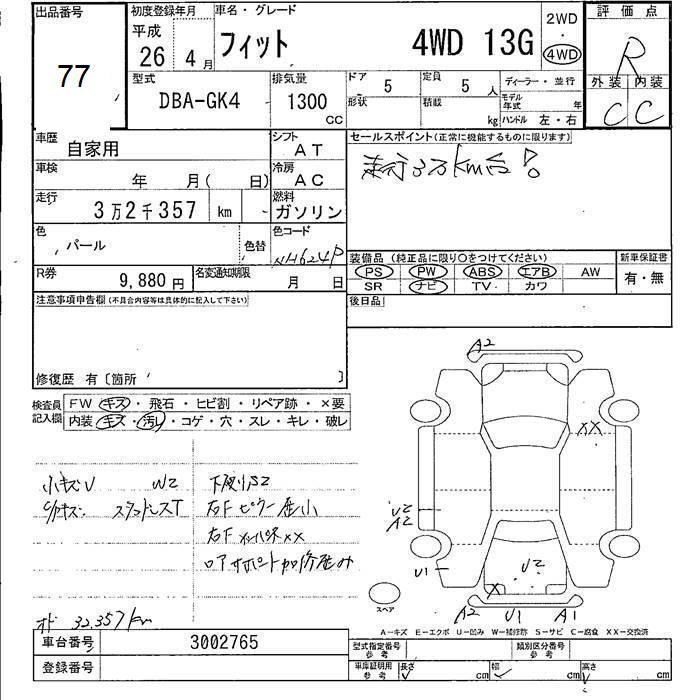 出品番号
77
初度登録年月
平成
26 4月
車名・グレード
フィット 4WD 13G
2WD
・
4WD
評価点
R
外装 内装
C C
型式
DBA-GK4
排気量
1300 CC
ドア 5
形状
定員 5 人
積載 kg
ディーラー・並行
モデル年式 年
ハンドル 左・右
車歴
自家用
シフト
AT
セールスポイント(正常に機能するものに限ります)
走行3万km台!
車検
年 月( 日)
冷房
AC
走行
3万2千357 km
燃料
ガソリン
色
パール
色替
色コード
NH624P
装備品(純正品に限り○をつけてください)
PS PW ABS エアB AW
SR ナビ TV カワ
新車保証書
有・無
R券
9,880円
名変通知期限
月 日
後日品
注意事項申告欄(不具合内容等は具体的に記入して下さい)
修復歴 有〔箇所 〕
検査員記入欄
FW キズ・飛石・ヒビ割・リペア跡・×要
内装 キズ・汚れ・コゲ・穴・スレ・キレ・破レ
小キズU W2
下廻りS2
スタッドレスT
右Fピラー歪小
右Fインパネ××
ロアサポート加修歪み
オド 32,357km
A2
××
U2
A2
U1
U2
×
A2 U1 A1
スペア
A−キズ E−エクボ U−凹み W−補修跡 S−サビ C−腐食 XX−交換済
車台番号 3002765
登録番号
型式指定番号 参考
類別区分番号 参考
車庫証明用 参考
長さ cm
幅 cm
高さ cm